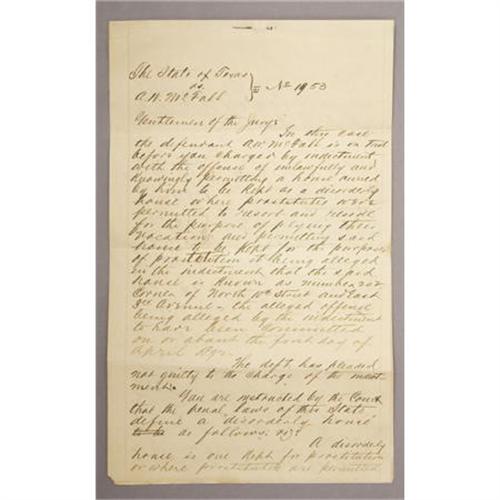 The State of Texas
vs. No 1953
A.W. McFall
Gentlemen of the Jury:
In this case
the defendant A.W. McFall is on trial
before you charged by indictment
with the offense of unlawfully and
knowingly permitting a house owned
by him to be kept as a disorderly
house where prostitutes were
permitted to resort and reside
for the purpose of plying their
vocation and permitting said
house to be kept for the purpose
of prostitution it being alleged
in the indictment that the said
house is known as number 202
corner of North 10th Street and East
3rd Avenue - the alleged offense
being alleged by the indictment
to have been committed
on or about the first day of
April
The deft. has pleaded
not guilty to the charge of the indict-
ment.
You are instructed by the Court
that the penal laws of this State
define a "disorderly house"
as follows: viz:
A disorderly
house is one kept for prostitution
or where prostitutes are permitted